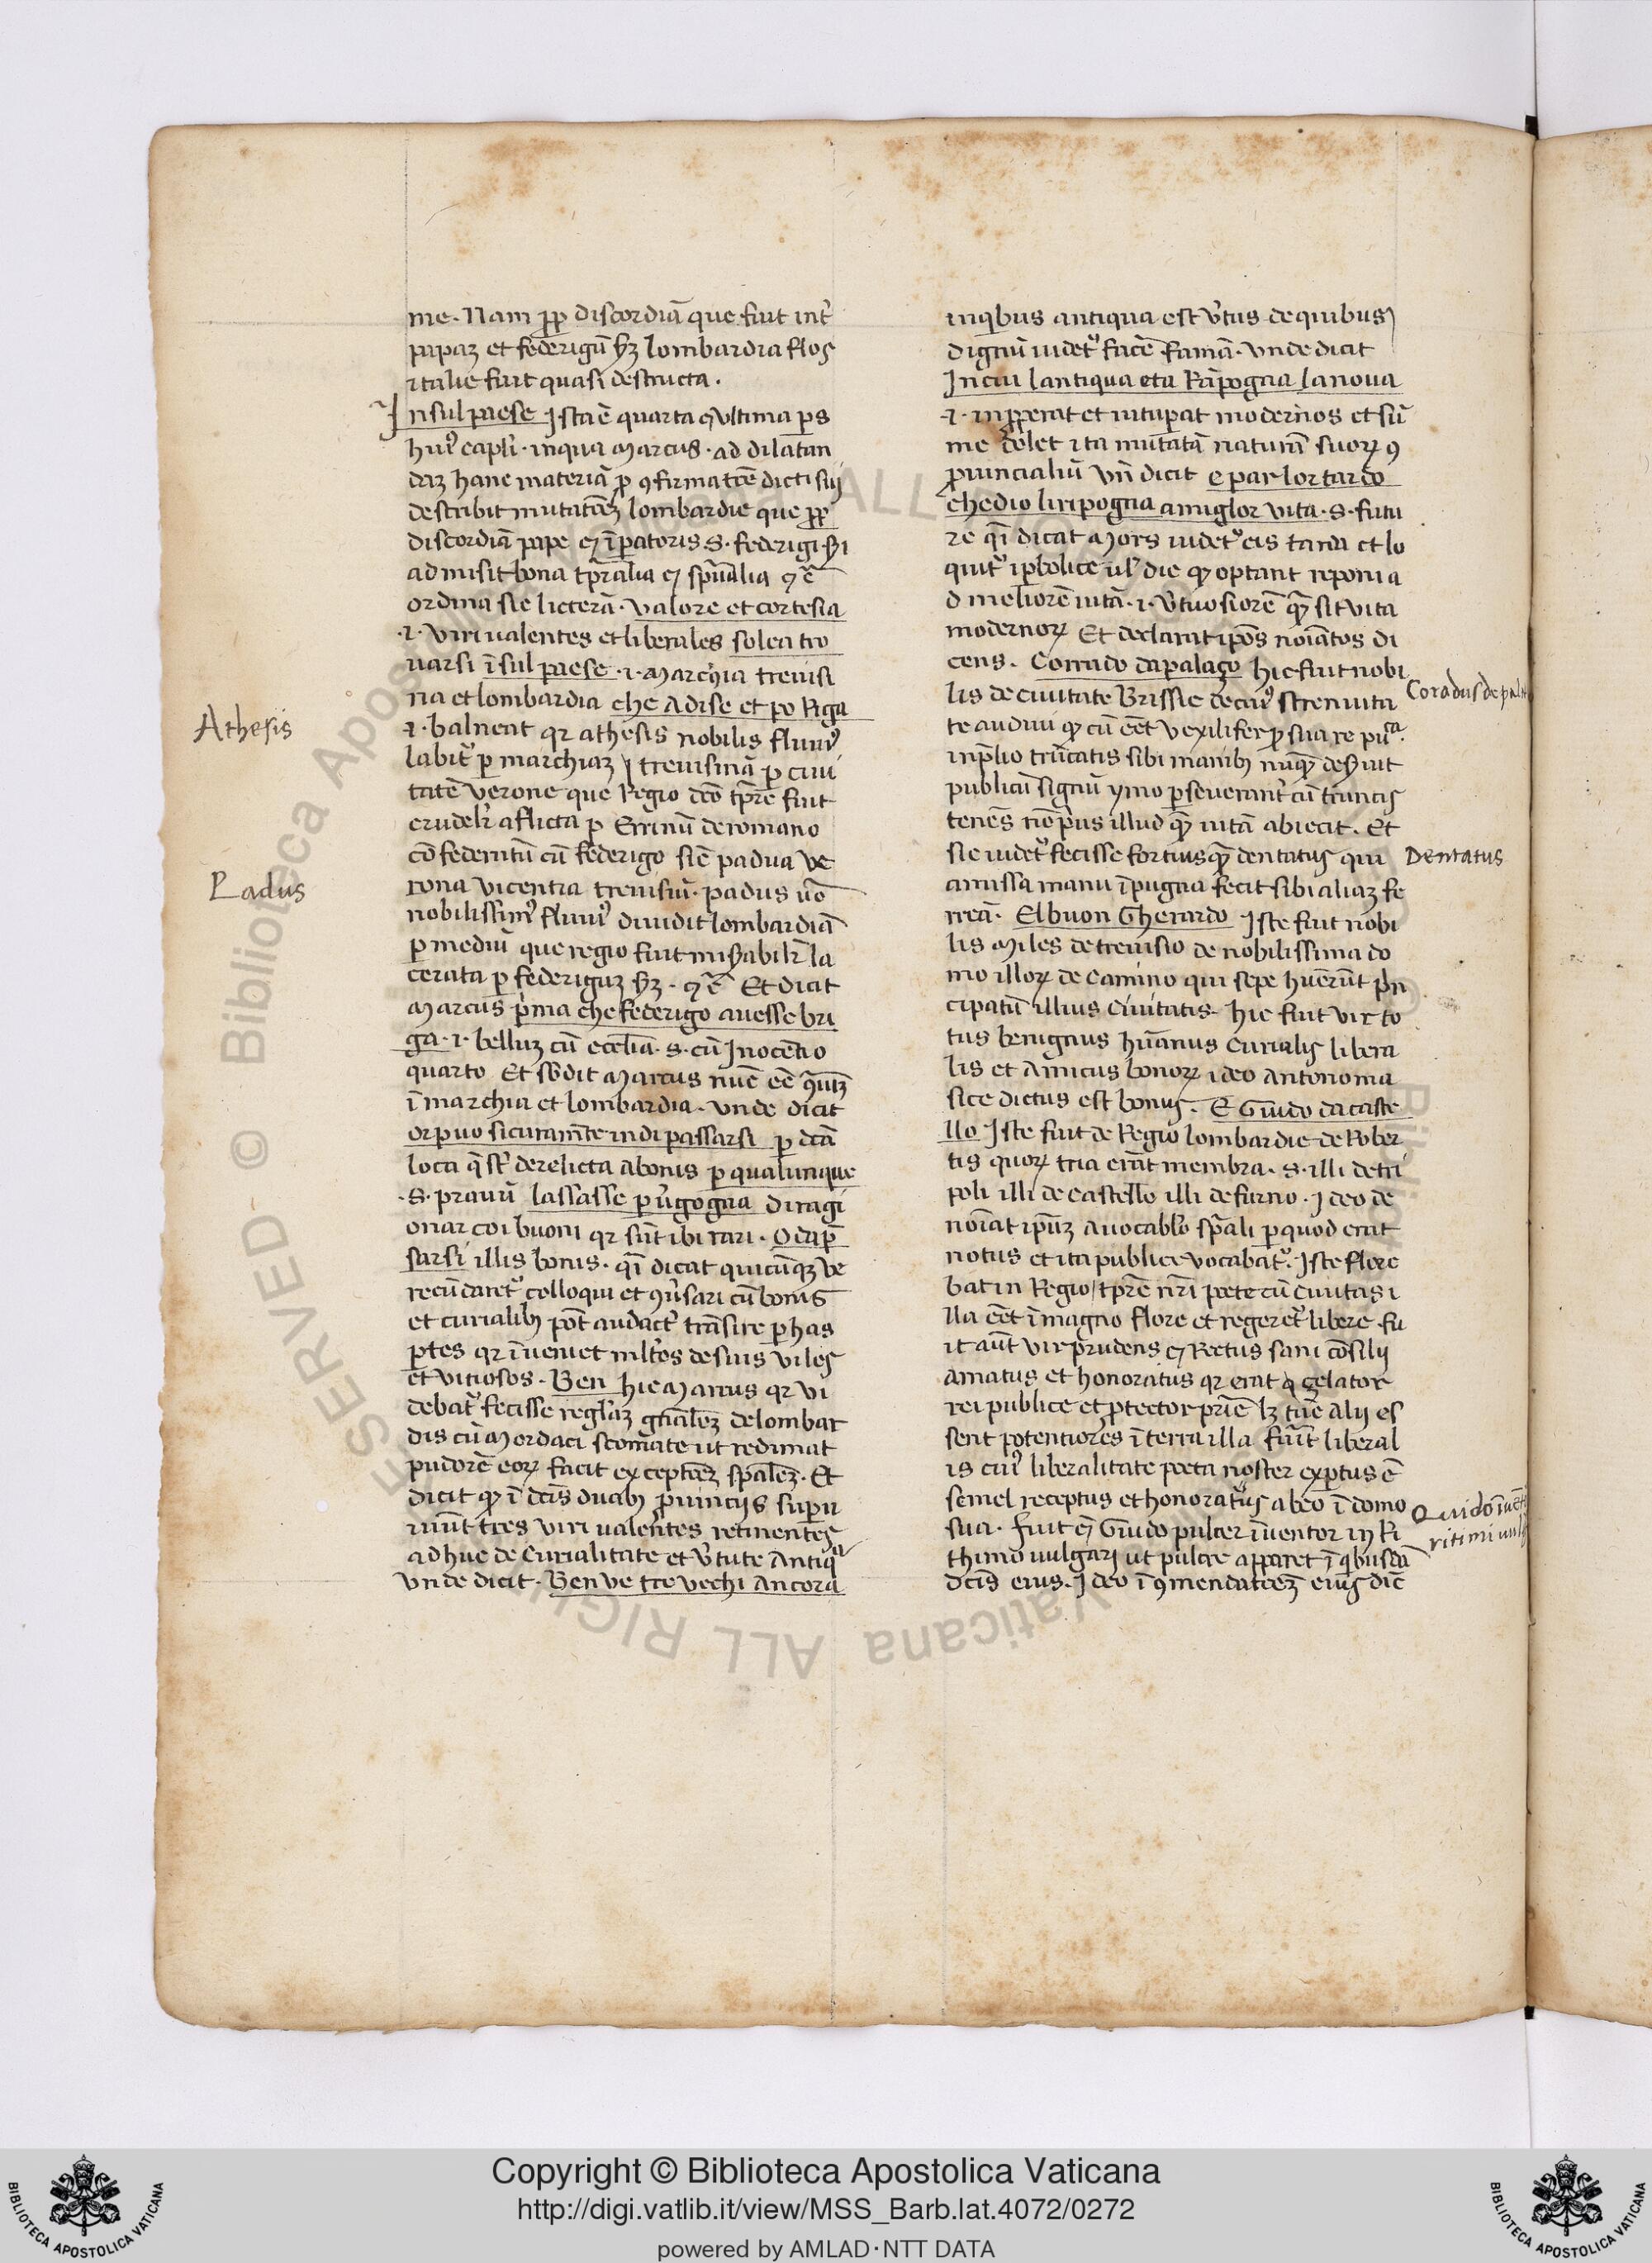 me. Nam ꝓp discordiã que fuit int̃
papaz et federigũ ß₃ lombardia flos
italie fuit quasi destructa.
Insul paese Ista ẽ quarta ꝯ ultima ps
huiꝰ capli. in qua Marcus. ad dilatan
daz hanc materiã ꝓ ꝯfirmatõe dicti sui
describit mutatõez lombardie que ꝓp
discordiã pape ⁊ ĩperatoris. s. federigi. ßi
admisit bona tꝑralia ⁊ spũalia ⁊ c̃
ordina sic litterã. valore et cortesia
.i. viri valentes et liberales solea tro
varsi ĩ sul paese .i. Marchia trevisi
Athesis
na et lombardia che Adise et po Riga
.i. balneat qr athesis nobilis fluviꝰ
labit̃ ꝑ marchiaz trevisinã ꝑ civi
tatẽ verone que Regio dc̃o tꝑre fuit
crudelr̃ aflicta ꝑ Errinũ de romano
cõfederatũ cũ federigo sic̃ padua ve
Padus
rona vicentia trevisiũ. padus vo
nobilissimꝰ fluviꝰ dividit lombardiã
ꝑ mediũ que regio fuit misabilr̃ la
cerata ꝑ federiguz ß₃. ⁊ c̃ Et dicit
Marcus prima che federigo avesse bri
ga .i. belluz cũ eccl̃ia. s. cũ Inocẽtio
quarto Et s̃bdit Marcus nũc eẽ
ĩ marchia et lombardia. unde dicit
or puo sicuramẽte indi passarsi ꝑ dc̃a
loca q̃ st̃ derelicta a bonis ꝑ qualunque
.s. pravũ lassasse ꝑ v̓gogna di ragi
onar coi buoni qr sũt ibi rari. O dap̃
sarsi illis bonis. q̃i dicat quicũqz ve
recũdaret̃ colloqui et ꝯv̓sari cũ bonis
et curialib3 põt audact̃ trãsire ꝑ has
ꝑtes qr ĩveniet ml̃tos de suis viles
et vitiosos. Ben hic Marcus qr vi
debat̃ fecisse regl̃az gñalẽz de lombar
dis cũ Mordaci scomate ut redimat
pudorẽ eoꝝ facit exceptõez spãlẽz. Et
dicit ꝙ ĩ dc̃is duab3 ꝓvincijs supvi
vũt tres viri valentes retinentes
adhuc de curialitate et v̓tute Antiqª
vnde dicit. Ben ve tre vechi Ancora
in qibus antiqua est v̓tus de quibus
dignũ videt̃ facẽ famã. Unde dicit
In cui lantiqua eta Rãpogna la nova
.i. inꝓperat et vitupat modernos et sũ
me dolet ita mutatã naturã suoꝝ ꝯ
ꝓvincialiũ vñ dicit e par lor tardo
che dio li ripogna a miglor vita. s. futu
re q̃i dicat Mors videt̃ eis tarda et lo
quit̃ iꝑbolice ul̃ dic ꝙ optant reponi a
d meliorẽ vitã .i. v̓tuosiorẽ q̃ sit vita
modernoꝝ Et declarat ip̃os noĩatos di
cens. Corrado da palaço hic fuit nobi
lis de civitate Brissie de cuiꝰ strenuita
Coradus de
te audivi ꝙ cũ eẽt vexilifer ꝓ sua re puca
in p̃lio trũcatis sibi manib3 nũq̃ deßuit
publicũ signũ ymo ꝑseveranr̃ cũ truncis
tenẽs nõ prius illud q̃ vitã abiecit. Et
sic videt̃ fecisse fortius q̃ dentatus qui
Dentatus
amissa manu ĩ pugna fecit sibi aliaz fe
rreã. El buon Gherardo Iste fuit nobi
lis Miles de trevisio de nobilissima do
mo illoꝝ de Camino qui sepe huerũt prĩ
cipatũ illius Civitatis. Hic fuit vir to
tus benignus hũanus curialis libera
lis et Amicus bonoꝝ ideo Antonoma
sice dictus est bonus. E Guido da caste
llo Iste fuit de Regio lombardie de Rober
tis quoꝝ tria erãt membra. s. illi de tri
poli illi de castello illi de furno. Ideo de
noĩat ip̃uz a vocablo sp̃ali ꝑ quod erat
notus et ita publice vocabat̃. Iste flore
bat in Regio tꝑre nr̃i poete cũ civitas i
lla eẽt ĩ magno flore et regeret̃ libere. fu
it aũt vir prudens ⁊ Rectus sani cõsilij
Amatus et honoratus qr erat çelator
rei publice et ꝓtector pr̃ie l₃ tũc Alij es
sent potentiores ĩ terra illa fuĩt liberal
is cuiꝰ liberalitate poeta noster exꝑtus ẽ
semel receptus et honoratus ab eo ĩ domo
Guido ĩvẽt
sua. fuit ⁊ Guido pulcer ĩventor in Ri
ritimi vulg
thimo vulgari ut pulcre apparet ĩ qibusdã
dc̃is eius. Ideo ĩ ꝯmendatõez eius dic̃
Copyright © Biblioteca Apostolica Vaticana
http://digi.vatlib.it/view/MSS_Barb.lat.4072/0272
powered by AMLAD·NTT DATA
© Biblioteca Apostolica Vaticana ALL RIGHTS RESERVED
BIBLIOTECA APOSTOLICA VATICANA
BIBLIOTECA APOSTOLICA VATICANA